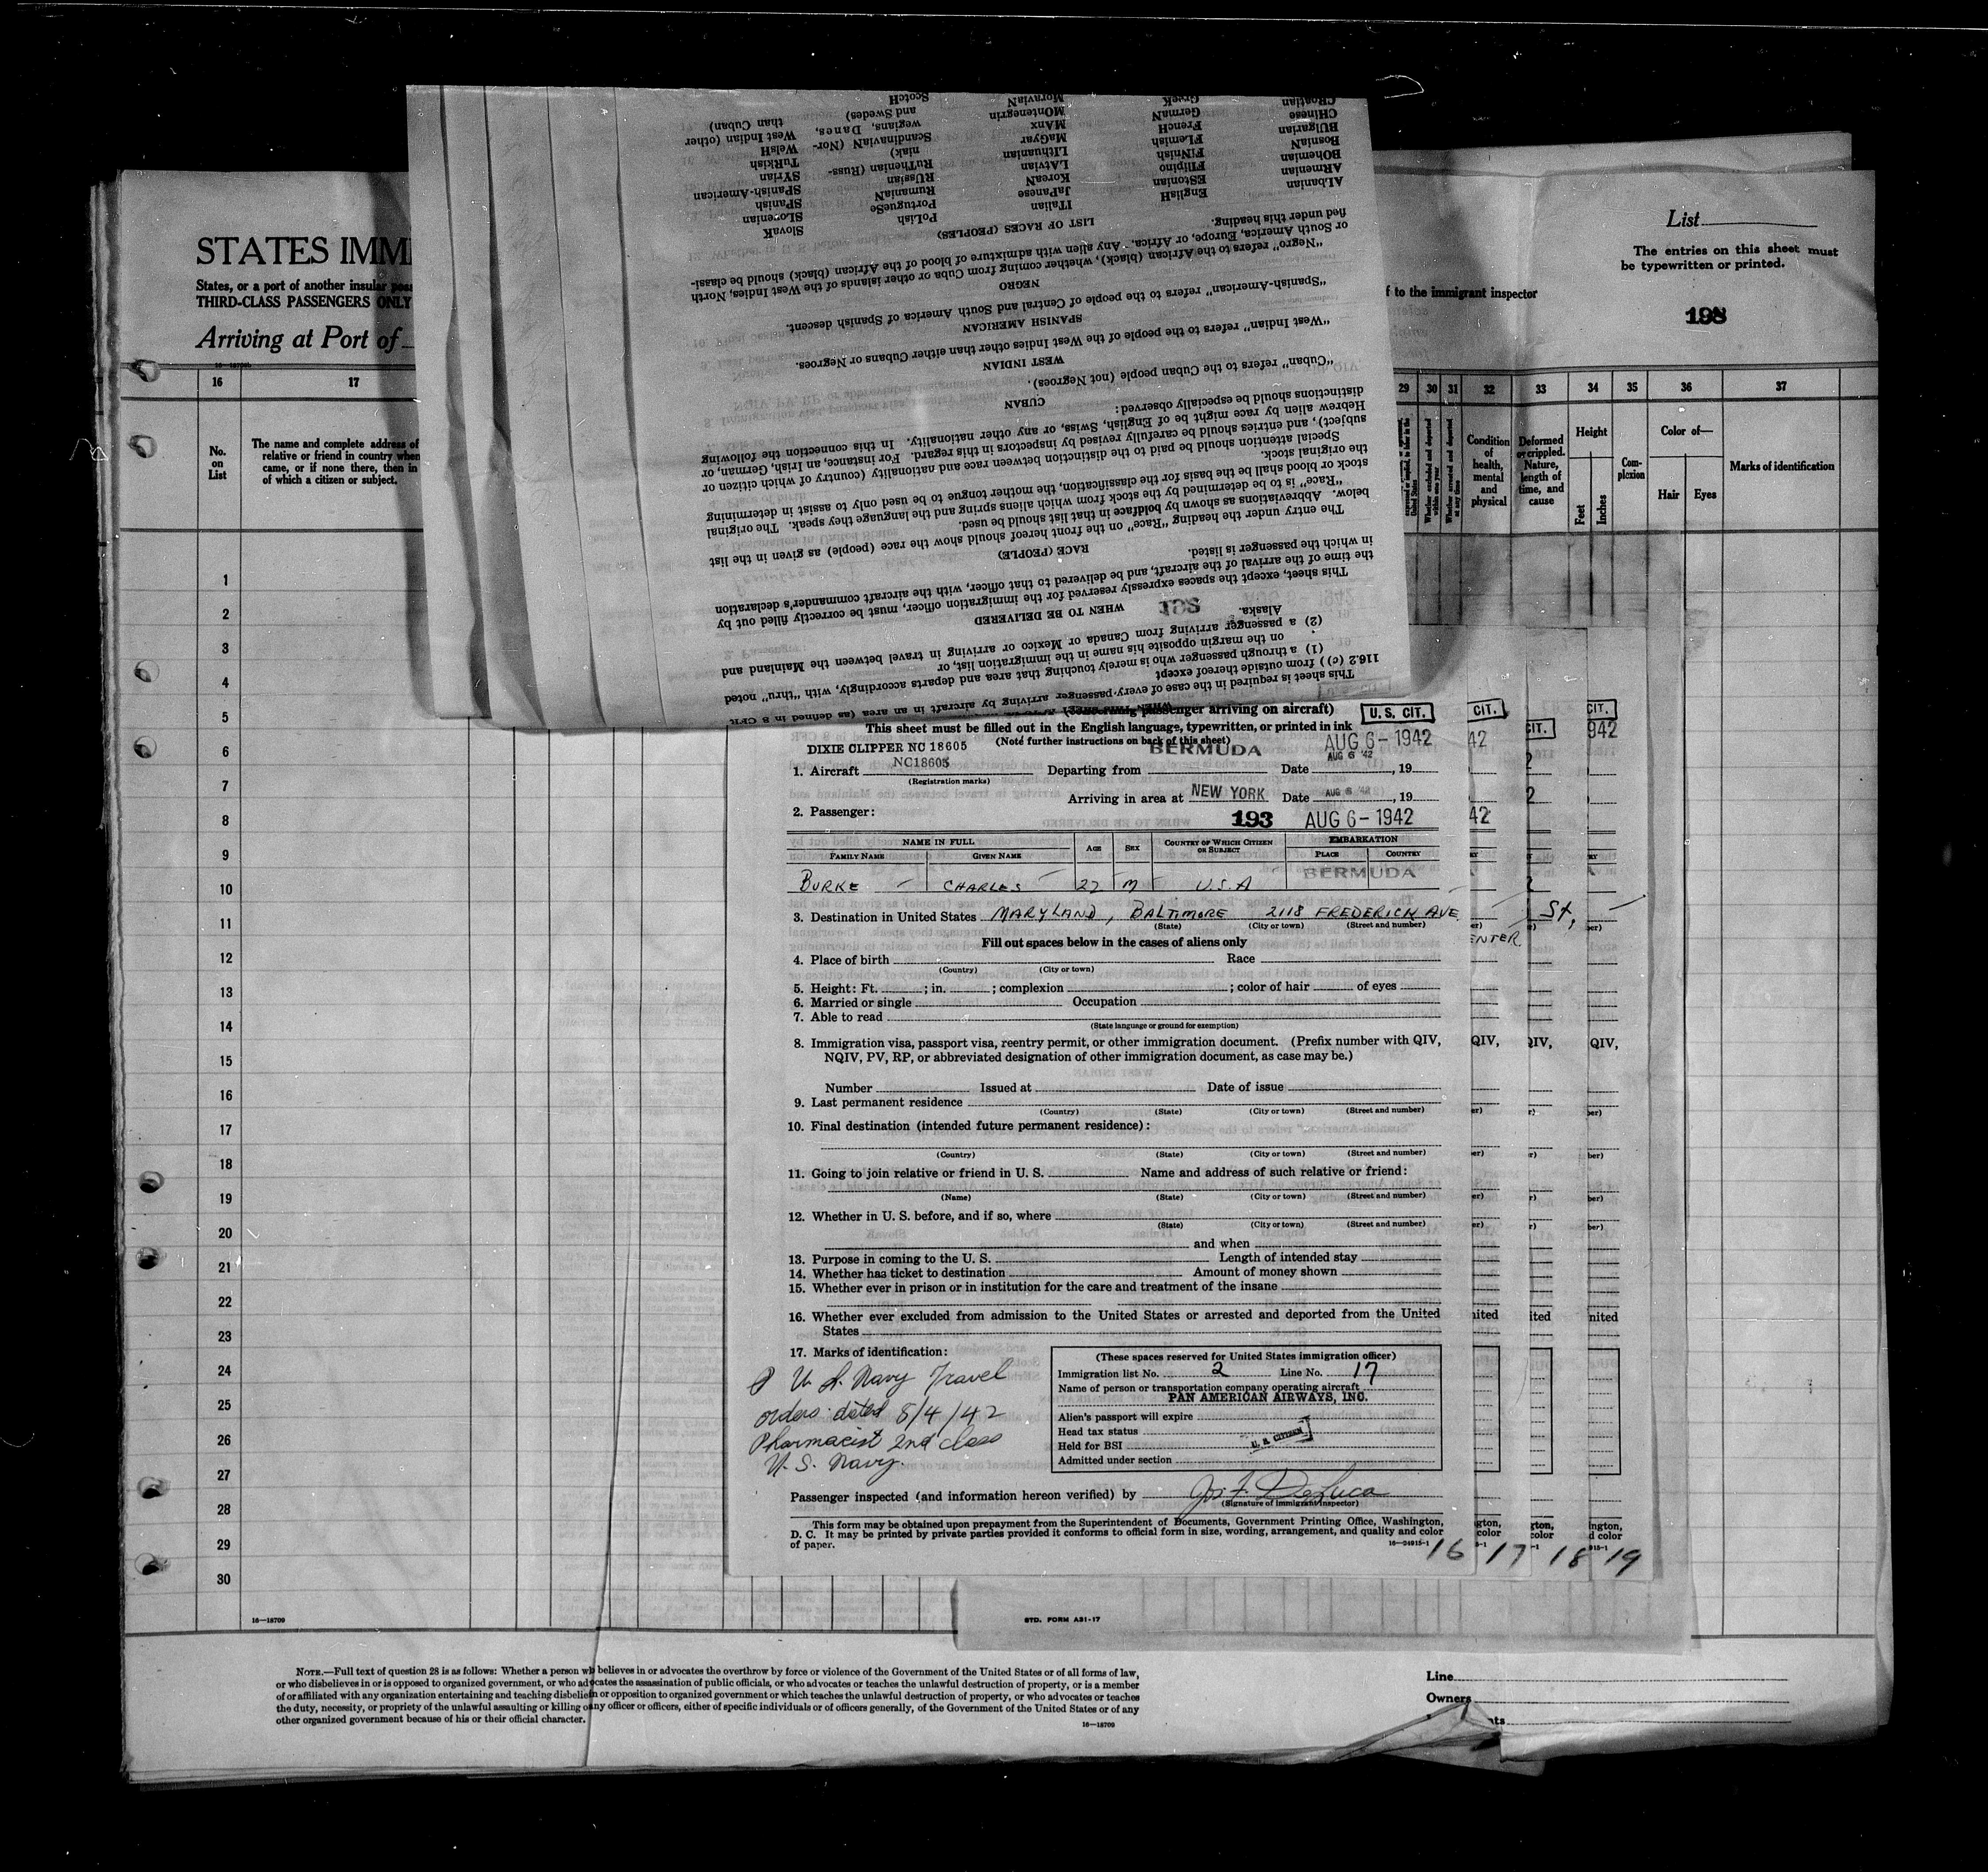 STATES IMMI
States, or a port of another insular
THIRD-CLASS PASSENGERS ONLY
Arriving at Port of
List
The entries on this sheet must
be typewritten or printed.
f to the immigrant inspector
198
16 17
29 30 31 32 33 34 35 36 37
No.
on
List
The name and complete address of
relative or friend in country when
came, or if none there, then in
of which a citizen or subject.
Whether excluded and deported
within one year
Whether arrested and deported
at any time
Condition
of
health,
mental
and
physical
Deformed
or crippled.
Nature,
length of
time, and
cause
Height
Feet
Inches
Com-
plexion
Color of—
Hair Eyes
Marks of identification
1
2
3
4
5
6
7
8
9
10
11
12
13
14
15
16
17
18
19
20
21
22
23
24
25
26
27
28
29
30
16—18709
This sheet is required in the case of every passenger arriving by aircraft in an area (as defined in 8 CFR
116.2 (c)) from outside thereof except
(1) a through passenger who is merely touching that area and departs accordingly, with "thru" noted
on the margin opposite his name in the immigration list, or
(2) a passenger arriving from Canada or Mexico or arriving in travel between the Mainland and
Alaska.
WHEN TO BE DELIVERED
198
This sheet, except the spaces expressly reserved for the immigration officer, must be correctly filled out by
the time of the arrival of the aircraft, and be delivered to that officer, with the aircraft commander's declaration
in which the passenger is listed.
RACE (PEOPLE)
The entry under the heading "Race" on the front hereof should show the race (people) as given in the list
below. Abbreviations as shown by boldface in that list should be used.
"Race" is to be determined by the stock from which aliens spring and the language they speak. The original
stock or blood shall be the basis for the classification, the mother tongue to be used only to assist in determining
the original stock.
Special attention should be paid to the distinction between race and nationality (country of which citizen or
subject), and entries should be carefully revised by inspectors in this regard. For instance, an Irish, German, or
Hebrew alien by race might be of English, Swiss, or any other nationality. In this connection the following
distinctions should be especially observed:
CUBAN
"Cuban" refers to the Cuban people (not Negroes).
WEST INDIAN
"West Indian" refers to the people of the West Indies other than either Cubans or Negroes.
SPANISH AMERICAN
"Spanish-American" refers to the people of Central and South America of Spanish descent.
NEGRO
"Negro" refers to the African (black), whether coming from Cuba or other islands of the West Indies, North
or South America, Europe, or Africa. Any alien with admixture of blood of the African (black) should be classi-
fied under this heading.
LIST OF RACES (PEOPLES)
AlBanian EnglisH ITalian PoLish SlovaK
ARmenian EStonian JaPanese PortugueSe SLovenian
BOhemian FIlipino KoreaN RumaniaN SPanish
BosniaN FINnish LAtvian RUssian SPanish-American
BUlgarian FLemish LIthuanian RuThenian (Russ- SYrian
CHinese FrencH MaGyar niak) TuRkish
CRoatian GermaN MAnx ScandinaviaN (Nor- WelsH
GreeK MOntenegrin wegians, Danes, West Indian (other
MoraviaN and Swedes) than Cuban)
ScotcH
passenger arriving on aircraft)
U. S. CIT.
This sheet must be filled out in the English language, typewritten, or printed in ink
(Note further instructions on back of this sheet)
DIXIE CLIPPER NC 18605
BERMUDA
AUG 6 - 1942
AUG 6 '42
NC18605
1. Aircraft Departing from Date , 19
(Registration marks)
Arriving in area at NEW YORK Date AUG 6 '42 , 19
2. Passenger:
193 AUG 6 - 1942
NAME IN FULL AGE SEX COUNTRY OF WHICH CITIZEN OR SUBJECT EMBARKATION
FAMILY NAME GIVEN NAME PLACE COUNTRY
BURKE CHARLES 22 M U.S.A BERMUDA
3. Destination in United States MARYLAND, BALTIMORE 2118 FREDERICK AVE
(State) (City or town) (Street and number)
Fill out spaces below in the cases of aliens only
4. Place of birth Race
(Country) (City or town)
5. Height: Ft. ; in. ; complexion ; color of hair of eyes
6. Married or single Occupation
7. Able to read
(State language or ground for exemption)
8. Immigration visa, passport visa, reentry permit, or other immigration document. (Prefix number with QIV,
NQIV, PV, RP, or abbreviated designation of other immigration document, as case may be.)
Number Issued at Date of issue
9. Last permanent residence
(Country) (State) (City or town) (Street and number)
10. Final destination (intended future permanent residence):
(Country) (State) (City or town) (Street and number)
11. Going to join relative or friend in U. S. Name and address of such relative or friend:
(Name) (State) (City or town) (Street and number)
12. Whether in U. S. before, and if so, where
(State) (City or town) (Street and number)
and when
13. Purpose in coming to the U. S. Length of intended stay
14. Whether has ticket to destination Amount of money shown
15. Whether ever in prison or in institution for the care and treatment of the insane
16. Whether ever excluded from admission to the United States or arrested and deported from the United
States
17. Marks of identification:
U. S. Navy Travel
orders dated 8/4/42
Pharmacist 2nd class
U. S. Navy.
(These spaces reserved for United States immigration officer)
Immigration list No. 2 Line No. 17
Name of person or transportation company operating aircraft
PAN AMERICAN AIRWAYS, INC.
Alien's passport will expire
Head tax status
Held for BSI U. S. CITIZEN
Admitted under section
Passenger inspected (and information hereon verified) by Jos F. DeLuca
(Signature of immigrant inspector)
This form may be obtained upon prepayment from the Superintendent of Documents, Government Printing Office, Washington,
D. C. It may be printed by private parties provided it conforms to official form in size, wording, arrangement, and quality and color
of paper.
16—24915-1
16 17 18 19
CIT.
42
CIT.
CIT.
942
42
St,
ENTER
QIV, QIV, QIV,
nited nited nited
STD. FORM A31-17
NOTE.—Full text of question 28 is as follows: Whether a person who believes in or advocates the overthrow by force or violence of the Government of the United States or of all forms of law,
or who disbelieves in or is opposed to organized government, or who advocates the assassination of public officials, or who advocates or teaches the unlawful destruction of property, or is a member
of or affiliated with any organization entertaining and teaching disbelief in or opposition to organized government or which teaches the unlawful destruction of property, or who advocates or teaches
the duty, necessity, or propriety of the unlawful assaulting or killing of any officer or officers, either of specific individuals or of officers generally, of the Government of the United States or of any
other organized government because of his or their official character.
16—18709
Line
Owners
nts